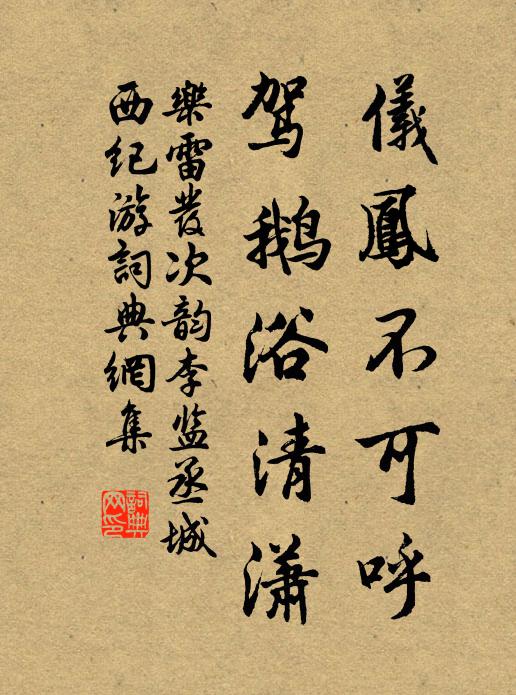 儀鳳不可呼
駕鹅浴清潇
樂雷發次韵李监丞城
西纪游詞典網集
詞典網印